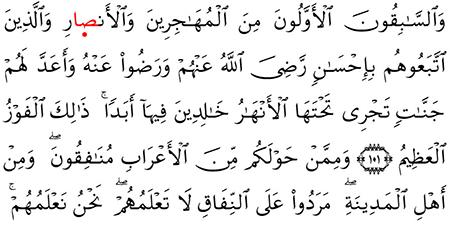 وَٱلسَّـٰبِقُونَ ٱلْأَوَّلُونَ مِنَ ٱلْمُهَـٰجِرِينَ وَٱلْأَنصَارِ وَٱلَّذِينَ
ٱتَّبَعُوهُم بِإِحْسَـٰنٍ رَّضِىَ ٱللَّهُ عَنْهُمْ وَرَضُوا۟ عَنْهُ وَأَعَدَّ لَهُمْ
جَنَّـٰتٍ تَجْرِى تَحْتَهَا ٱلْأَنْهَـٰرُ خَـٰلِدِينَ فِيهَآ أَبَدًا ۚ ذَٰلِكَ ٱلْفَوْزُ
ٱلْعَظِيمُ ١٠١ وَمِمَّنْ حَوْلَكُم مِّنَ ٱلْأَعْرَابِ مُنَـٰفِقُونَ ۖ وَمِنْ
أَهْلِ ٱلْمَدِينَةِ ۖ مَرَدُوا۟ عَلَى ٱلنِّفَاقِ لَا تَعْلَمُهُمْ ۖ نَحْنُ نَعْلَمُهُمْ ۚ